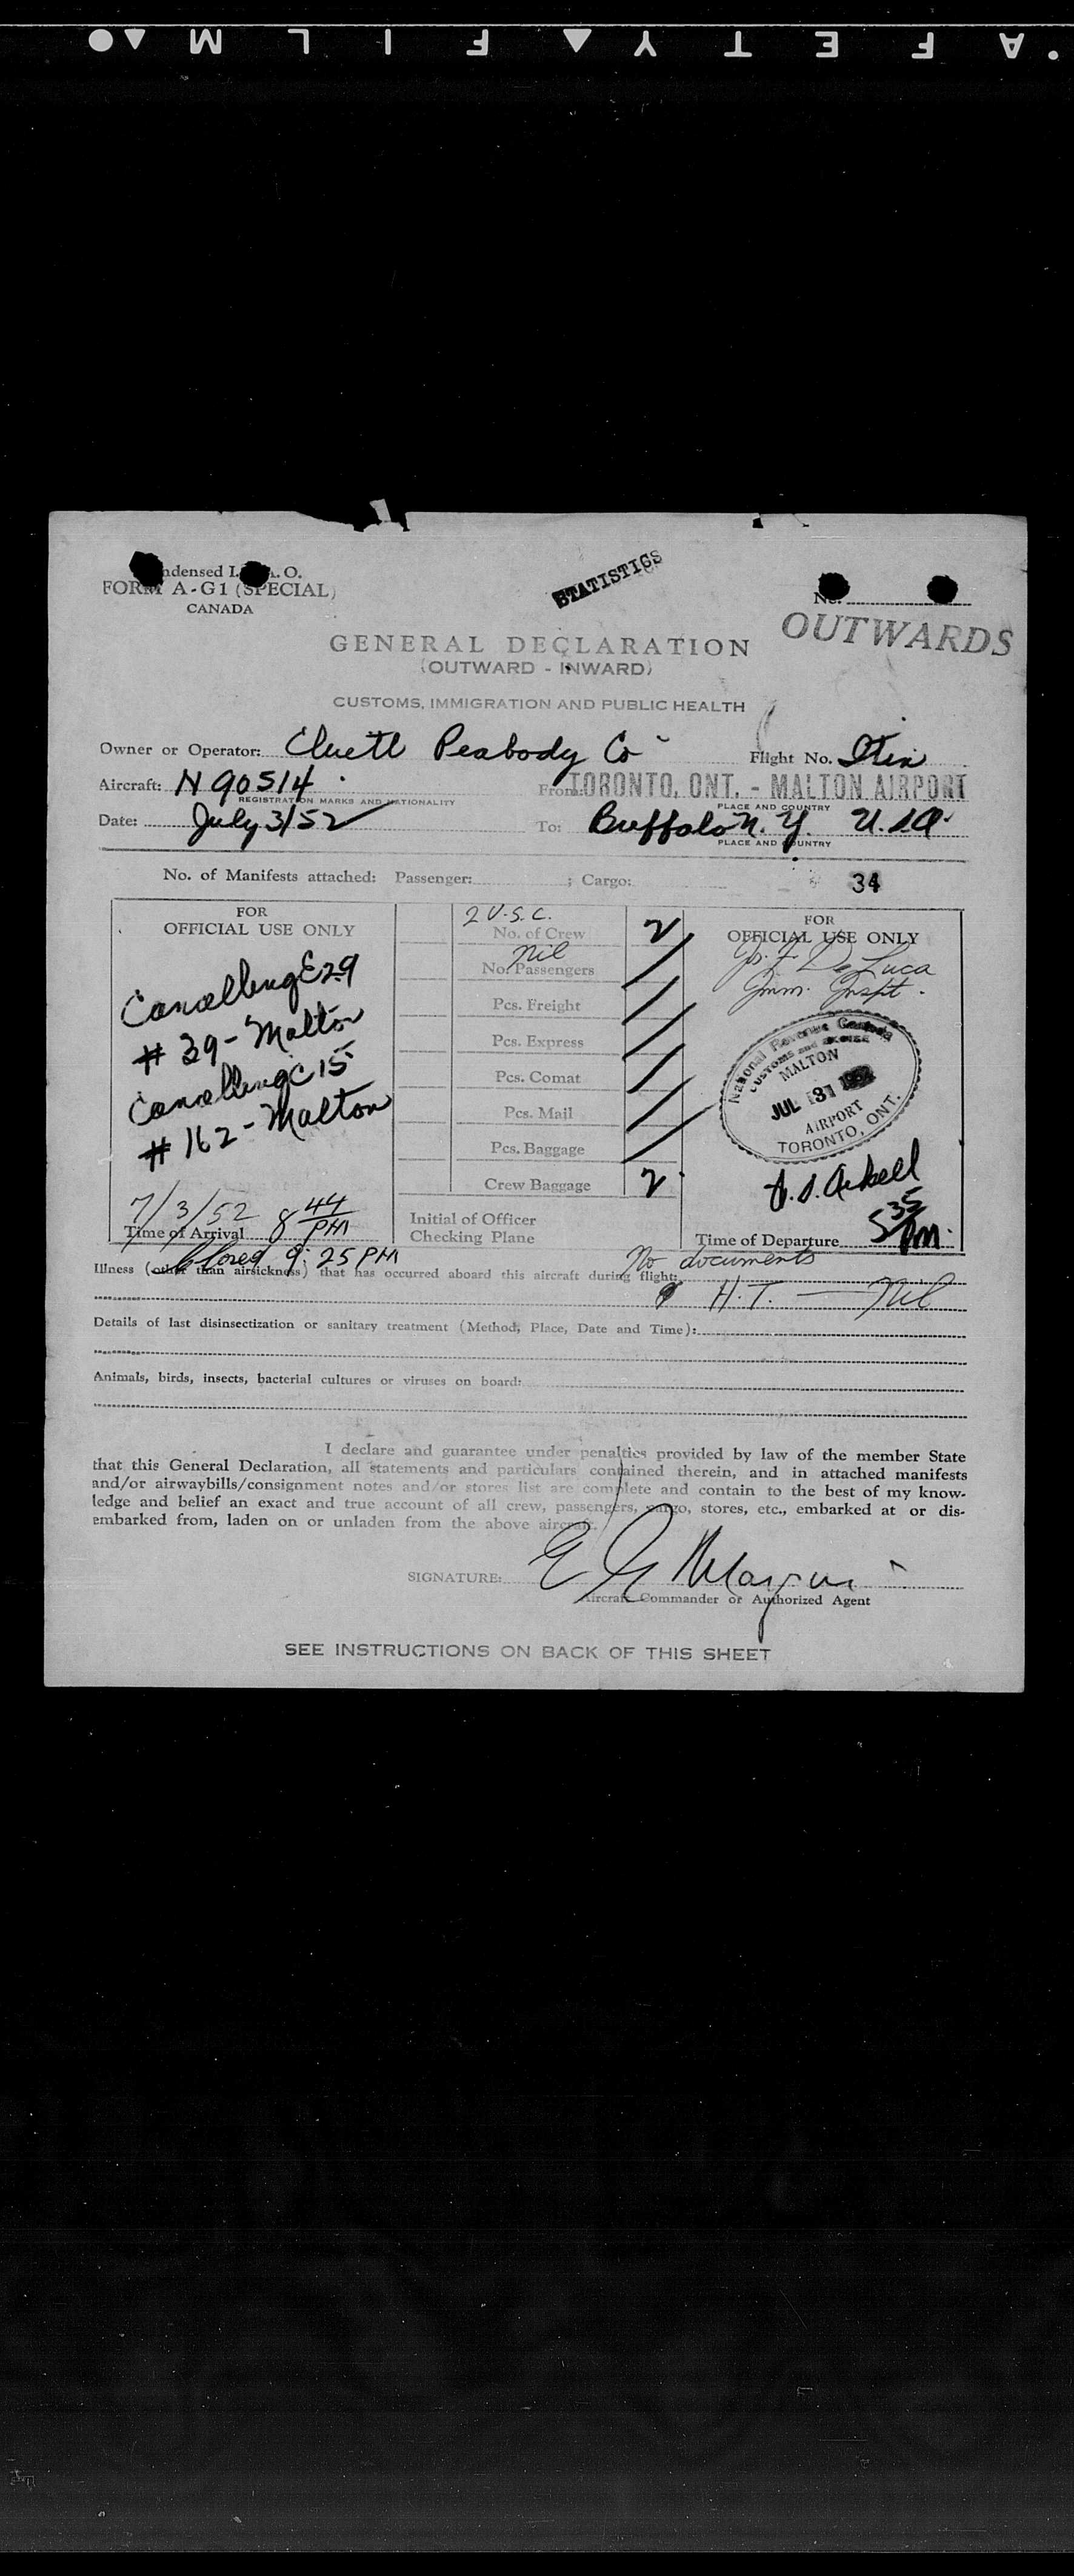 SAFETY FILM
Condensed I.C.A.O.
FORM A-G1 (SPECIAL)
CANADA
STATISTICS
No.
OUTWARDS
GENERAL DECLARATION
(OUTWARD - INWARD)
CUSTOMS, IMMIGRATION AND PUBLIC HEALTH
Owner or Operator: Cluett Peabody Co Flight No. Itin
Aircraft: N 90514 From: TORONTO, ONT. - MALTON AIRPORT
REGISTRATION MARKS AND NATIONALITY PLACE AND COUNTRY
Date: July 3/52 To: Buffalo N.Y. U.S.A.
PLACE AND COUNTRY
No. of Manifests attached: Passenger: ; Cargo: 34
FOR
OFFICIAL USE ONLY
Cancelling E29
# 39 - Malton
Cancelling C15
# 162 - Malton
7/3/52 8 44 PM
Time of Arrival
Closed 9:25 PM
2 U.S.C.
No. of Crew 2
Nil
No. Passengers
Pcs. Freight
Pcs. Express
Pcs. Comat
Pcs. Mail
Pcs. Baggage
Crew Baggage 2
Initial of Officer
Checking Plane
FOR
OFFICIAL USE ONLY
Jos. F. DeLuca
Imm. Inspt.
National Revenue Canada
CUSTOMS AND EXCISE
MALTON
JUL 3
AIRPORT
TORONTO, ONT.
Time of Departure 5 35 PM.
No documents
Illness (other than airsickness) that has occurred aboard this aircraft during flight:
H.T. — Nil
Details of last disinsectization or sanitary treatment (Method, Place, Date and Time):
Animals, birds, insects, bacterial cultures or viruses on board:
I declare and guarantee under penalties provided by law of the member State
that this General Declaration, all statements and particulars contained therein, and in attached manifests
and/or airwaybills/consignment notes and/or stores list are complete and contain to the best of my know-
ledge and belief an exact and true account of all crew, passengers, cargo, stores, etc., embarked at or dis-
embarked from, laden on or unladen from the above aircraft.
SIGNATURE:
Aircraft Commander or Authorized Agent
SEE INSTRUCTIONS ON BACK OF THIS SHEET